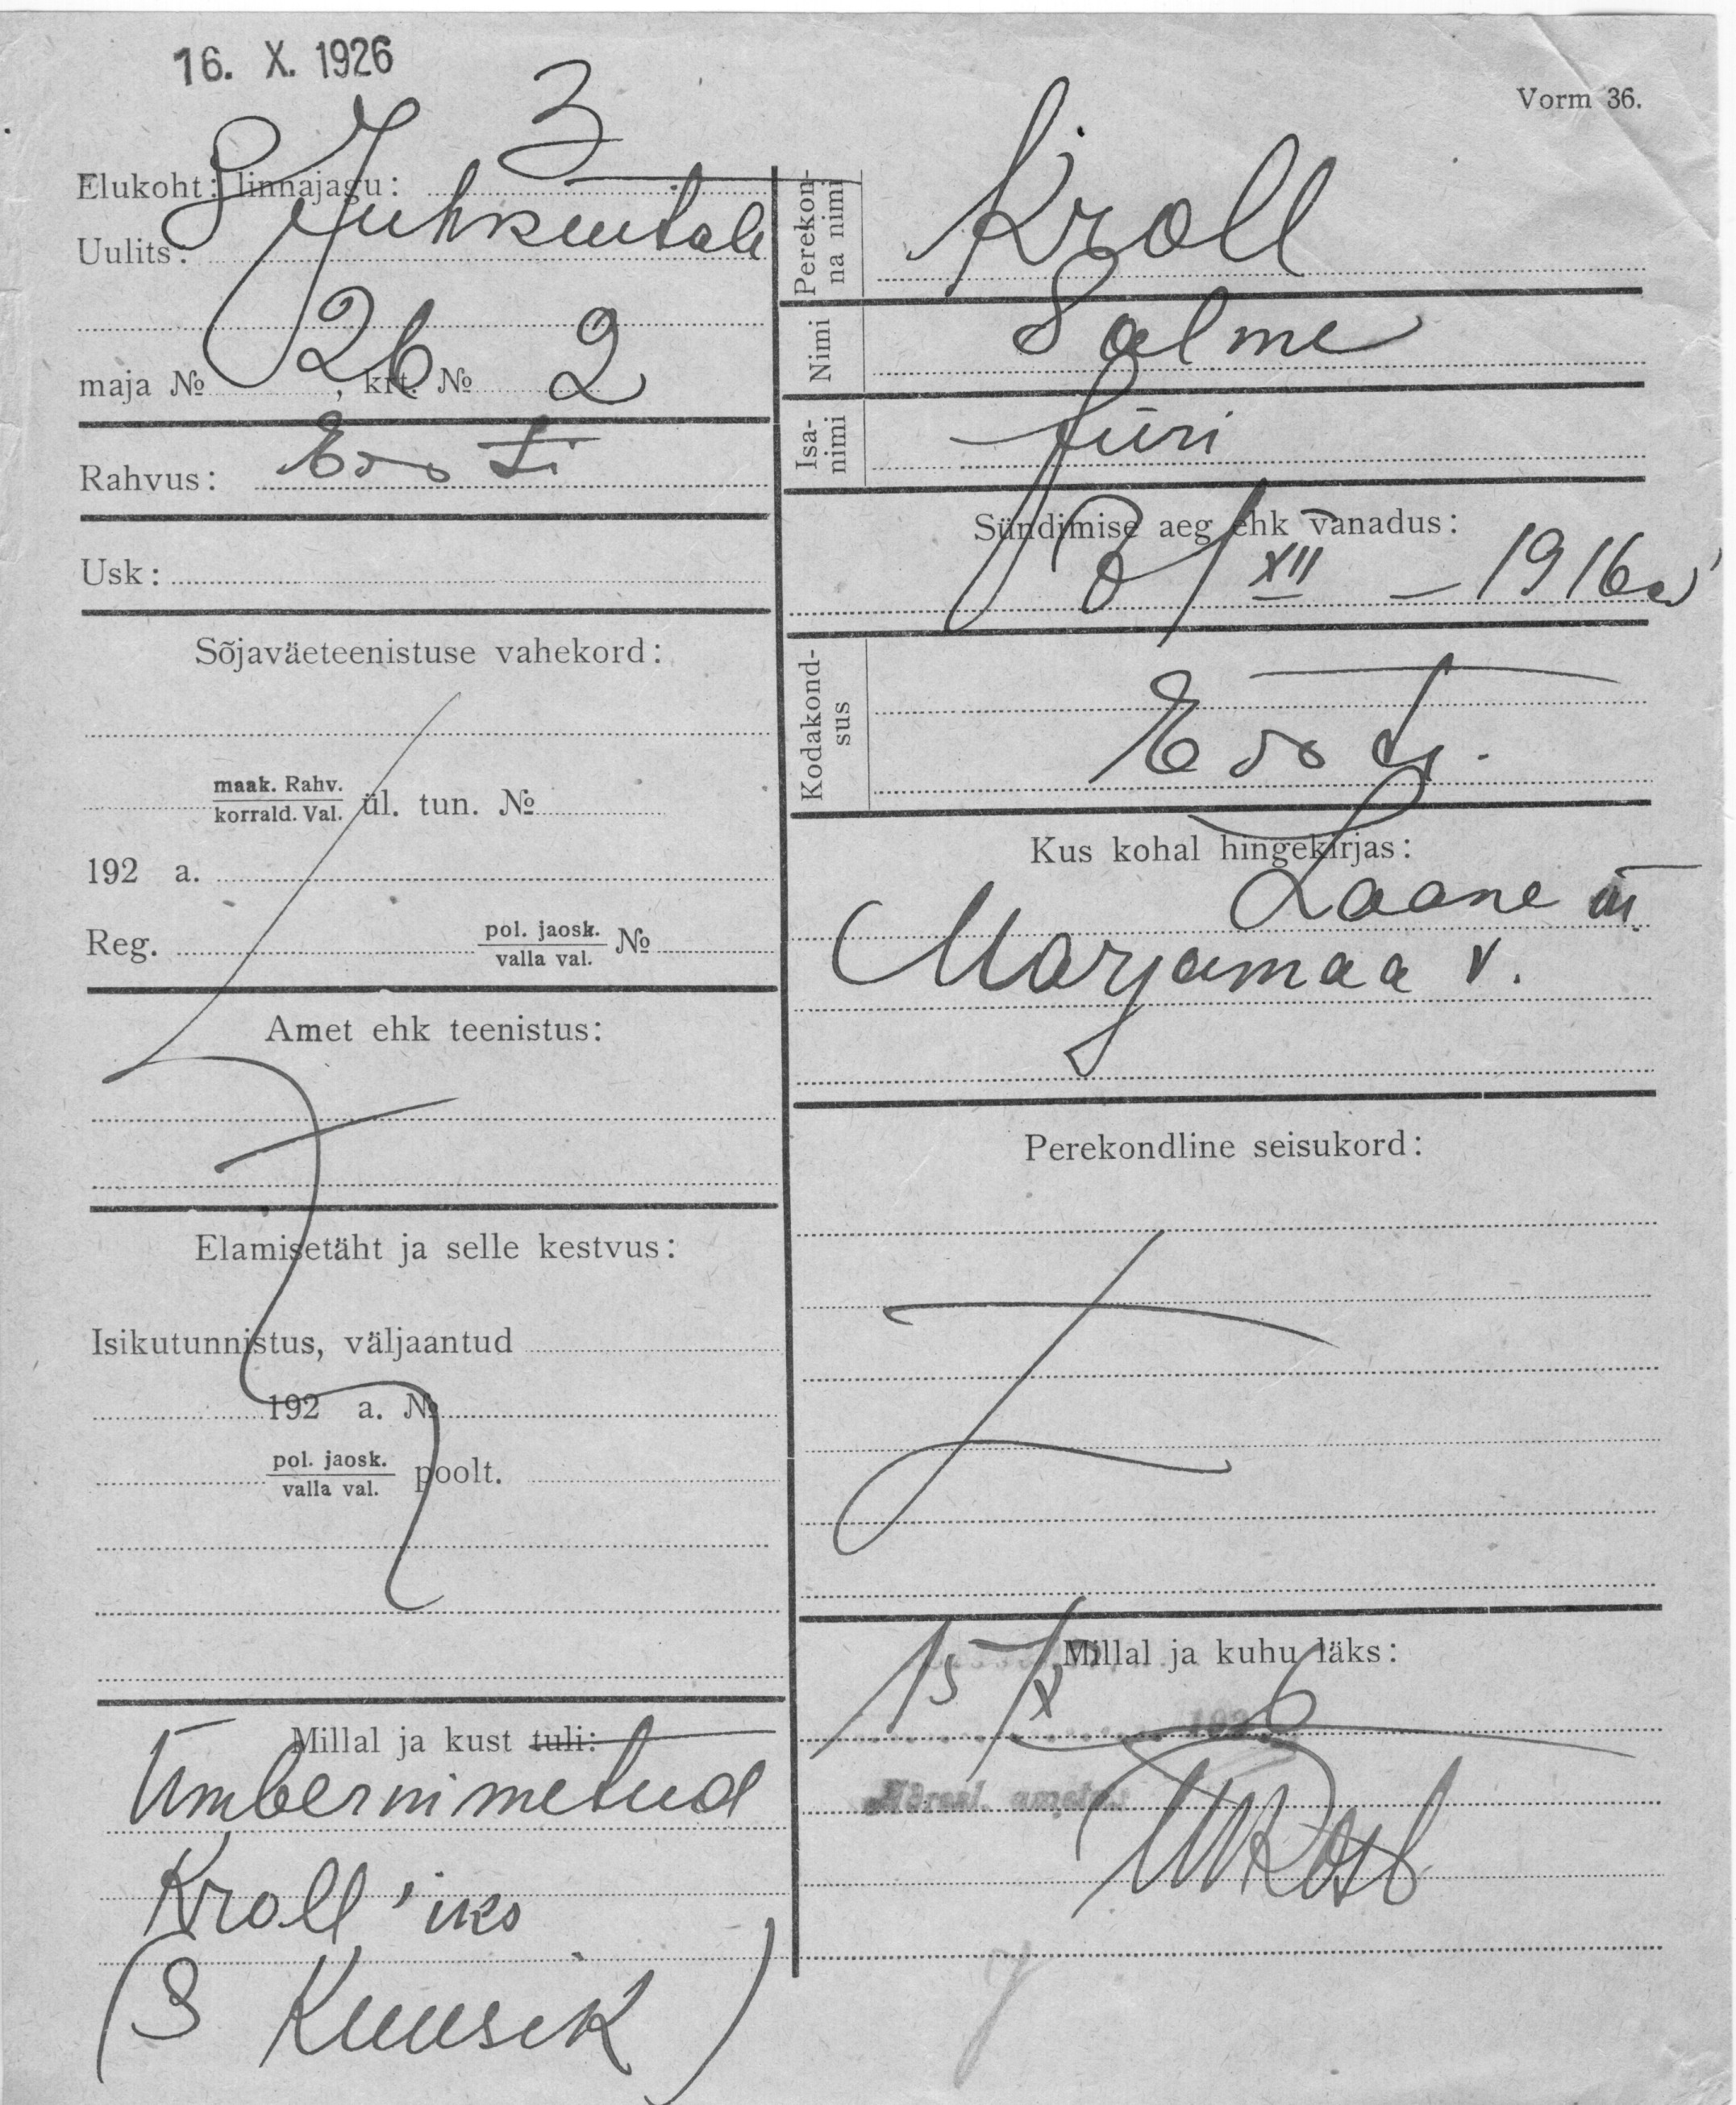 16. X. 1926
Vorm 36.
Elukoht: linnajagu: 3
Uulits: S Juhkentali
maja № 26, krt. № 2
Rahvus: Eesti
Usk:
Sõjaväeteenistuse vahekord:
maak. Rahv.
korrald. Val. ül. tun. №
192 a.
Reg. pol. jaosk. №
valla val.
Amet ehk teenistus:
Elamisetäht ja selle kestvus:
Isikutunnistus, väljaantud
192 a. №
pol. jaosk.
valla val. poolt.
Millal ja kust tuli:
Ümbernimetud
Kroll'iks
(S Kuusik)
Perekon-
na nimi Kroll
Nimi Salme
Isa-
nimi Jüri
Sündimise aeg ehk vanadus:
8/XII – 1916
Kodakond-
sus Eesti
Kus kohal hingekirjas:
Lääne m
Marjamaa v.
Perekondline seisukord:
Millal ja kuhu läks:
15/X 1926